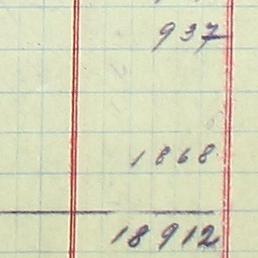 937
1868
18912